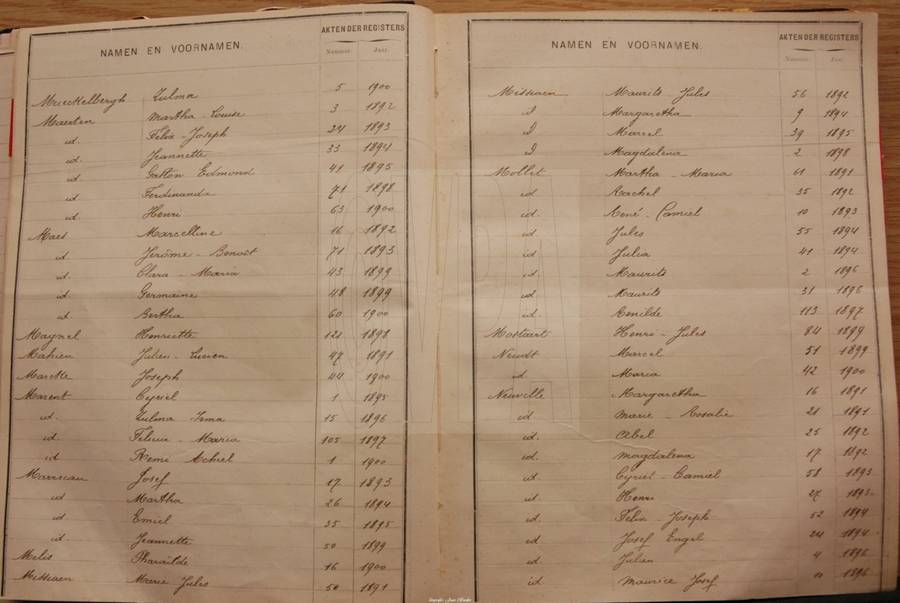 NAMEN EN VOORNAMEN. AKTEN DER REGISTERS
Nummer. Jaar.
Mueckelbergh Zulma 5 1900
Maerten Martha-Louise 3 1892
id. Felix-Joseph 24 1893
id. Jeannette 33 1894
id. Gaston Edmond 41 1895
id. Ferdinande 71 1898
id. Henri 63 1900
Maes Marcelline 16 1892
id. Jérôme-Benoît 71 1893
id. Clara-Maria 43 1899
id. Germaine 48 1899
id. Bertha 60 1900
Maynel Henriette 121 1898
Mahieu Jules-Lucien 47 1891
Marcke Joseph 44 1900
Marent Cyriel 1 1895
id. Zulma Irma 15 1896
id. Felicie-Maria 105 1897
id Remi Achiel 1 1900
Josef 17 1893
id Martha 26 1894
id Emiel 35 1895
id. Jeannette 50 1899
Melis Pharaïlde 16 1900
Missiaen Marie Jules 50 1891
NAMEN EN VOORNAMEN. AKTEN DER REGISTERS
Nummer. Jaar.
Missiaen Maurits Jules 56 1892
id Margaretha 9 1894
id Marcel 39 1895
id Magdalena 2 1898
Mollet Martha-Maria 61 1891
id Rachel 35 1892
id. René-Camiel 10 1893
id Jules 55 1894
id. Julia 41 1894
id Maurits 2 1896
id Maurits 31 1896
id. Remilde 113 1897
Mostaert Henri-Jules 84 1899
Neudt Marcel 51 1899
id Maria 42 1900
Neuville Margaretha 16 1891
id Marie-Rosalie 21 1891
id. Abel 25 1892
id. Magdalena 17 1892
id. Cyriel-Camiel 58 1893
id Henri 27 1893
id. Felix Joseph 52 1894
id. Josef Engel 24 1894
id. Julien 4 1896
id Maurice Josef 10 1896